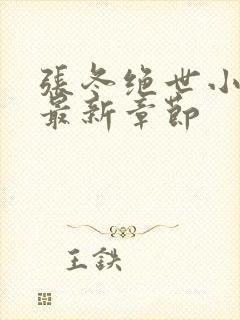 張冬绝世小
最新章節
王鉄